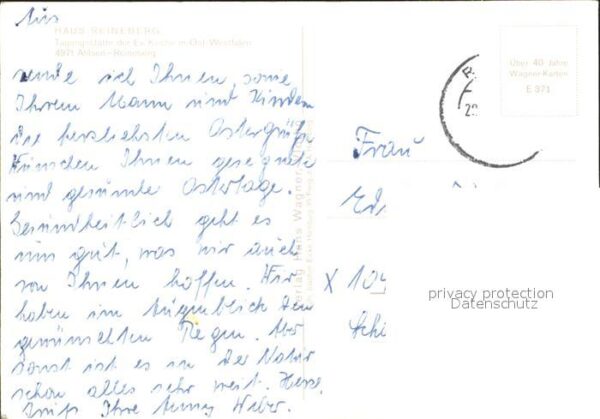 Aus
HAUS REINEBERG
Tagungsstätte der Ev. Kirche in Ost-Westfalen
4971 Ahlsen-Reineberg
sende ich Ihnen, sowie
Ihrem Mann und Kindern
die herzlichsten Ostergrüße
Wünschen Ihnen gesegnete
und gesunde Ostertage.
Gesundheitlich geht es
uns gut, was wir auch
von Ihnen hoffen. Wir
haben im Augenblick den
gewünschten Regen. Aber
sonst ist es in der Natur
schon alles sehr weit. Herzl.
Gruß Ihre Weber.
Verlag Hans Wagner
Über 40 Jahre
Wagner-Karten
E 971
Frau
X 104
privacy protection
Datenschutz